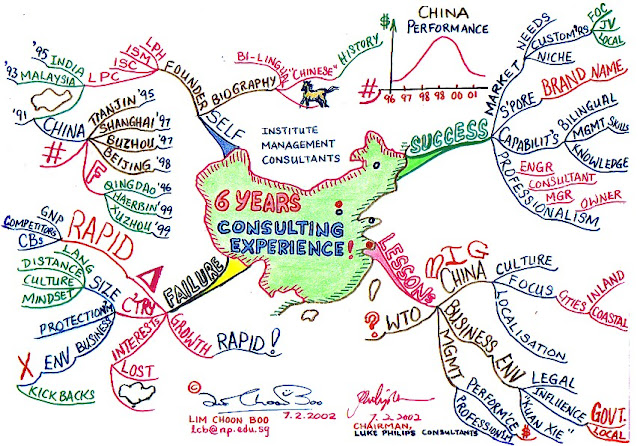 6 YEARS
CONSULTING
EXPERIENCE!
INSTITUTE
MANAGEMENT
CONSULTANTS
SELF
FOUNDER
LPH
ISM
ISC
LPC
'95 INDIA
'93 MALAYSIA
'91 CHINA
TIANJIN '95
SHANGHAI '97
BUZHOU '97
BEIJING '98
#
F
QINGDAO '96
HAERBIN '99
XUZHOU '99
BIOGRAPHY
BI-LINGUAL
"CHINESE"
HISTORY
CHINA
PERFORMANCE
$
#
96 97 98 99 00 01
SUCCESS
MARKET NEEDS
CUSTOM'RS
FOC
JV
LOCAL
NICHE
S'PORE
BRAND NAME
CAPABILIT'S
BILINGUAL
MGMT SKILLS
KNOWLEDGE
PROFESSIONALISM
ENGR
CONSULTANT
MGR
OWNER
LESSONS
BIG
CHINA
CULTURE
FOCUS
CITIES
INLAND
COASTAL
LOCALISATION
WTO
?
BUSINESS ENV
LEGAL
INFLUENCE
"GUAN XIE"
GOVT.
LOCAL
MGMT
PERFORM'CE
PROFESSION'LS
$
FAILURE
GROWTH
RAPID!
INTERESTS
LOST
C'TRY
RAPID
GNP
COMPETITORS
CBs
SIZE
LANG
DISTANCE
CULTURE
MINDSET
BUSINESS
PROTECTION'M
ENV
X
KICKBACKS
©
Lim Choon Boo
7.2.2002
LIM CHOON BOO
lcb@np.edu.sg
7.2.2002
CHAIRMAN,
LUKE PHILIPS CONSULTANTS